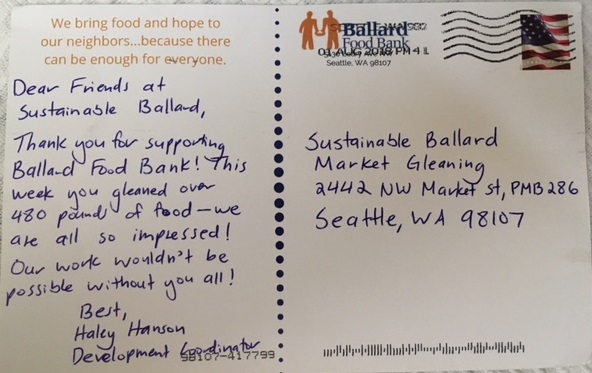 We bring food and hope to
our neighbors...because there
can be enough for everyone.
Dear Friends at
Sustainable Ballard,
Thank you for supporting
Ballard Food Bank! This
week you gleaned over
480 pounds of food—we
are all so impressed!
Our work wouldn't be
possible without you all!
Best,
Haley Hanson
Development Coordinator
98107-417799
Ballard
Food Bank
01 AUG 2018 PM 4 L
Seattle, WA 98107
Sustainable Ballard
Market Gleaning
2442 NW Market St, PMB 286
Seattle, WA 98107